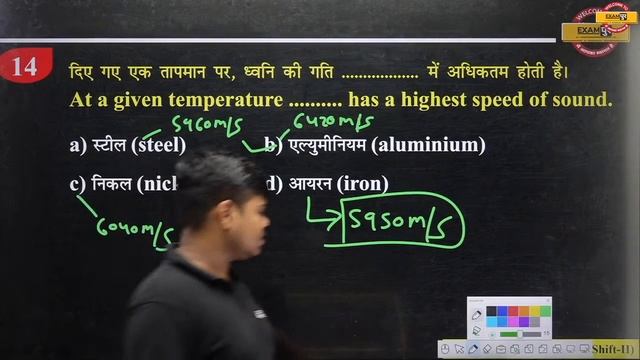 WELCOME TO
EXAM पुर
14
दिए गए एक तापमान पर, ध्वनि की गति .................. में अधिकतम होती है।
At a given temperature .......... has a highest speed of sound.
5960m/s
6420m/s
a) स्टील (steel)
b) एल्युमीनियम (aluminium)
c) निकल (nic
d) आयरन (iron)
6040m/s
5950m/s
15
Shift-II)